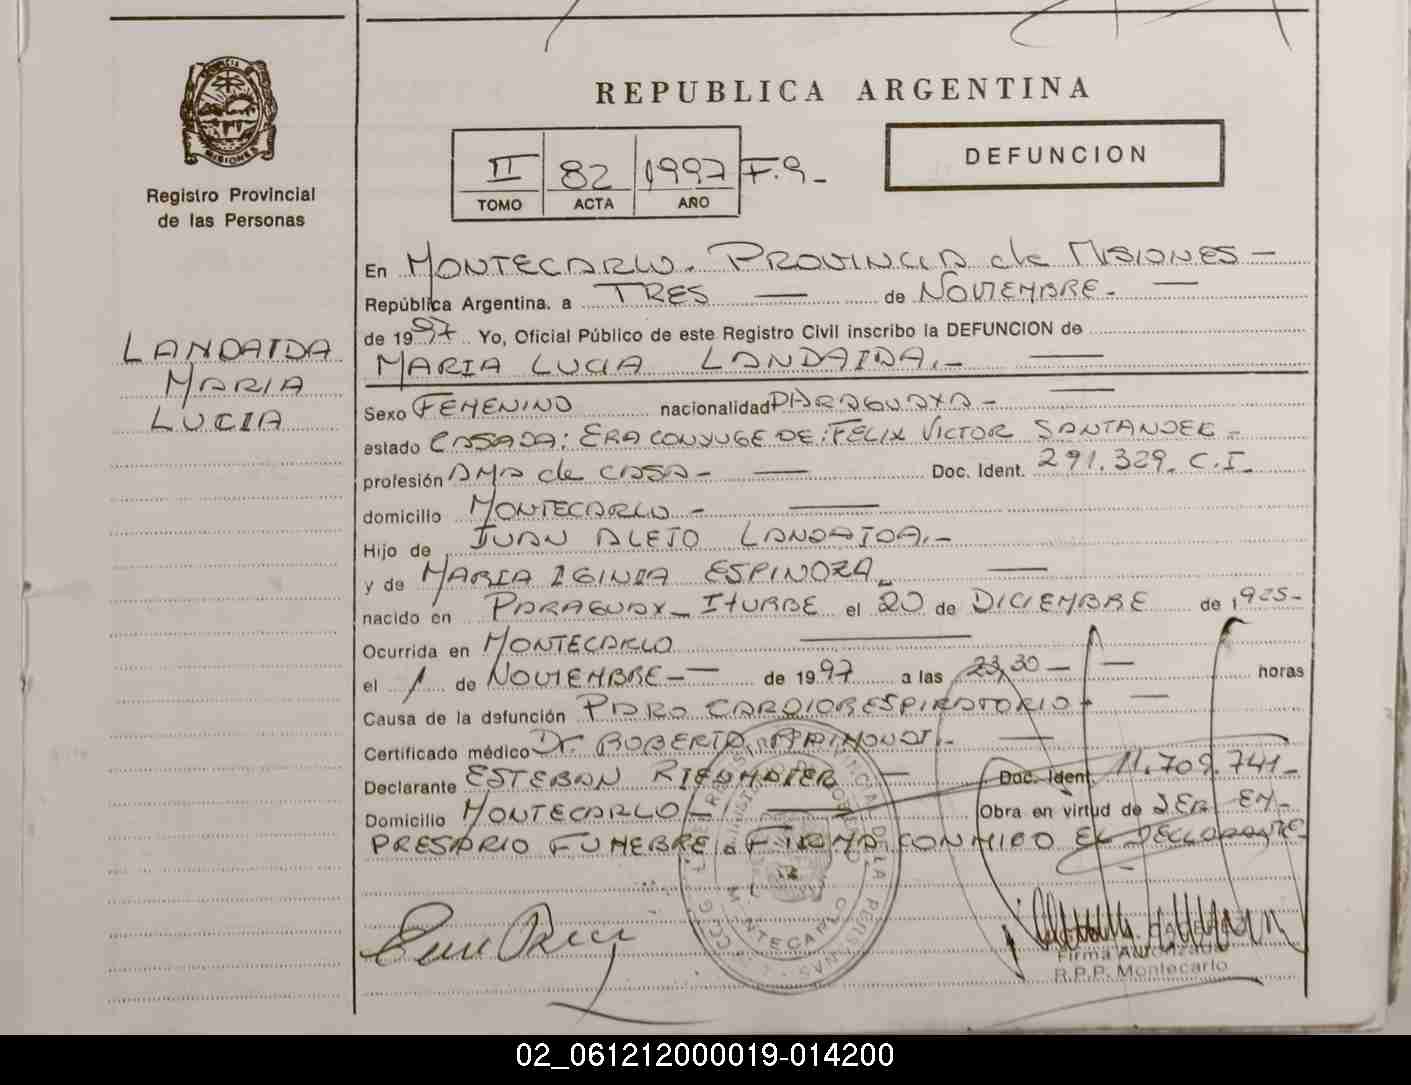 REPUBLICA ARGENTINA
MISIONES
Registro Provincial
de las Personas
II 82 1997 F.9-
TOMO ACTA AÑO
DEFUNCION
LANDAIDA
MARIA
LUCIA
En MONTECARLO. PROVINCIA de MISIONES -
República Argentina. a TRES de NOVIEMBRE -
de 1997 Yo, Oficial Público de este Registro Civil inscribo la DEFUNCION de
MARIA LUCIA LANDAIDA.-
Sexo FEMENINO nacionalidad PARAGUAYA -
estado CASADA: ERA CONYUGE DE: FELIX VICTOR SANTANDER -
profesión AMA de CASA - Doc. Ident. 291.329. C.I.
domicilio MONTECARLO -
Hijo de JUAN ALEJO LANDAIDA.-
y de MARIA IGINIA ESPINOZA
nacido en PARAGUAY - ITURBE el 20 de DICIEMBRE de 1925-
Ocurrida en MONTECARLO
el 1 de NOVIEMBRE - de 1997 a las 23,30 - horas
Causa de la defunción PARO CARDIORESPIRATORIO -
Certificado médico Dr. ROBERTO RAIMONDI.-
Declarante ESTEBAN Doc. Ident. 11.709.741-
Domicilio MONTECARLO - Obra en virtud de SER EM-
PRESARIO FUNEBRE. FIRMA CONMIGO EL DECLARANTE
MONTECARLO
Firma Autorizada
R.P.P. Montecarlo
02_061212000019-014200